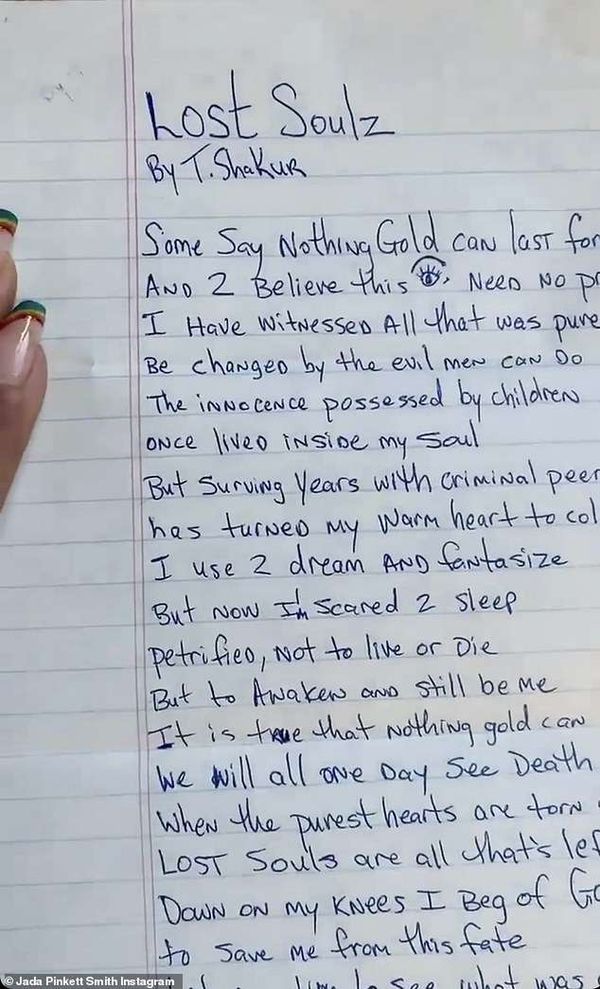 Lost Soulz
By T. Shakur
Some Say Nothing Gold can last for
AND 2 Believe this Need No pr
I Have witnessed All that was pure
Be changed by the evil men can Do
The innocence possessed by children
once lived inside my Soul
But Surving Years with criminal peer
has turned my Warm heart to col
I use 2 dream AND fantasize
But Now I'm Scared 2 Sleep
petrified, Not to live or Die
But to Awaken and still be me
It is true that Nothing gold can
We will all one Day See Death
When the purest hearts are torn
LOST Souls are all that's lef
Down on my knees I Beg of Go
to Save me from this fate
what was
©Jada Pinkett Smith Instagram